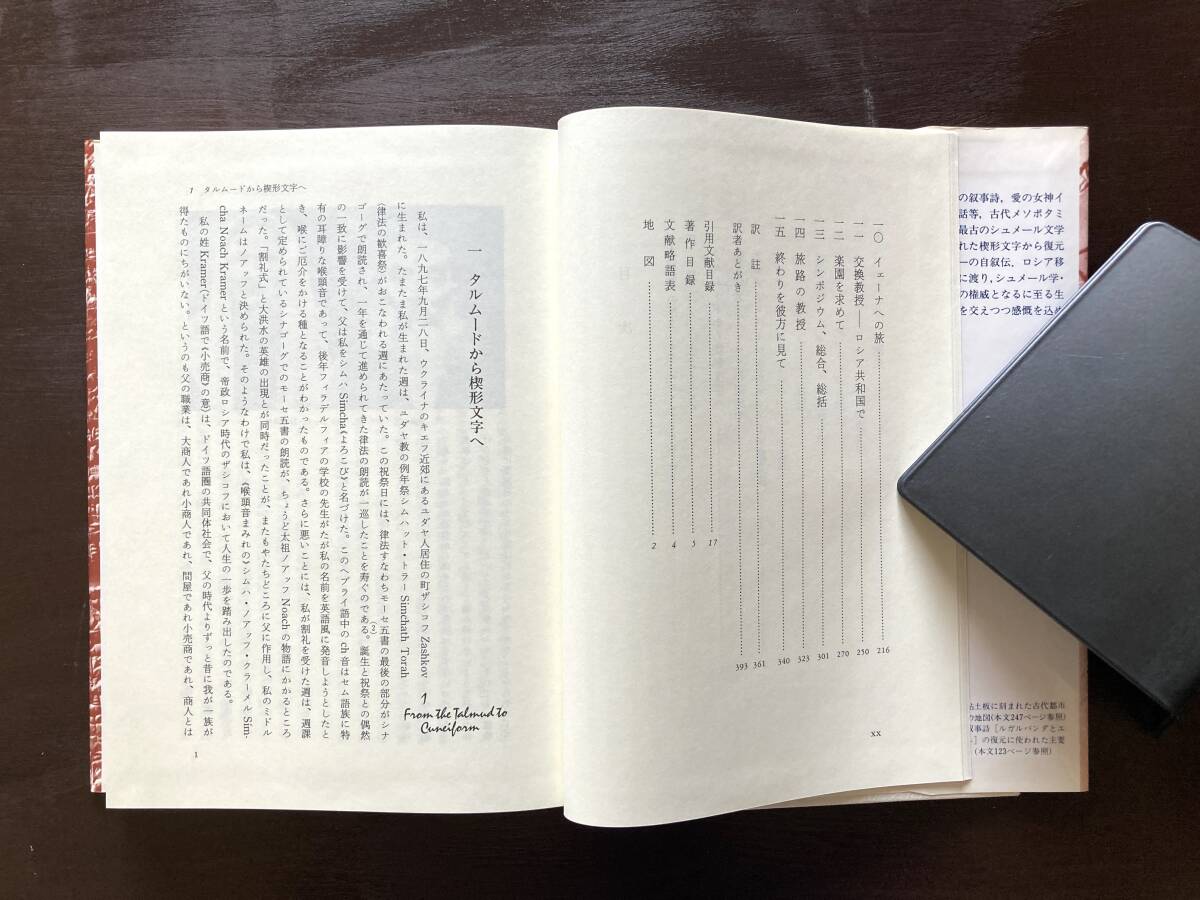 一〇 イェーナへの旅 216
一一 交換教授——ロシア共和国で 250
一二 楽園を求めて 270
一三 シンポジウム、総合、総括 301
一四 旅路の教授 323
一五 終わりを彼方に見て 340
訳 註 361
訳者あとがき 393
引用文献目録 17
著作目録 5
文献略語表 4
地 図 2
xx
の叙事詩，愛の女神イ
話等，古代メソポタミ
最古のシュメール文学
れた楔形文字から復元
一の自叙伝．ロシア移
に渡り，シュメール学・
の権威となるに至る生
を交えつつ感慨を込め
粘土板に刻まれた古代都市
の地図(本文247ページ参照)
叙事詩［ルガルバンダとエ
］の復元に使われた主要
(本文123ページ参照)
1 タルムードから楔形文字へ
一 タルムードから楔形文字へ
1
From the Talmud to
Cuneiform
私は、一八九七年九月二八日、ウクライナのキエフ近郊にあるユダヤ人居住の町ザシコフ Zashkov
に生まれた。たまたま私が生まれた週は、ユダヤ教の例年祭シムハット・トラー Simchath Torah
(律法の歓喜祭)がおこなわれる週にあたっていた。この祝祭日には、律法すなわちモーセ五書の最後の部分がシナ
ゴーグで朗読され、一年を通じて進められてきた律法の朗読が一巡したことを寿ぐのである。(2)誕生と祝祭との偶然
の一致に影響を受けて、父は私をシムハ Simcha《よろこび》と名づけた。このヘブライ語中の ch 音はセム語族に特
有の耳障りな喉頭音であって、後年フィラデルフィアの学校の先生がたが私の名前を英語風に発音しようとしたと
き、喉にご厄介をかける種となることがわかったものである。さらに悪いことには、私が割礼を受けた週は、週課
として定められているシナゴーグでのモーセ五書の朗読が、ちょうど太祖ノアッフ Noach の物語にかかるところ
だった。「割礼式」と大洪水の英雄の出現とが同時だったことが、またもやたちどころに父に作用し、私のミドル
ネームはノアッフと決められた。そのようなわけで私は、《喉頭音まみれの》シムハ・ノアッフ・クラーメル Sim-
cha Noach Kramer という名前で、帝政ロシア時代のザシコフにおいて人生の一歩を踏み出したのである。
私の姓 Kramer(ドイツ語で《小売商》の意)は、ドイツ語圏の共同体社会で、父の時代よりずっと昔に我が一族が
得たものにちがいない。というのも父の職業は、大商人であれ小商人であれ、問屋であれ小売商であれ、商人とは
1